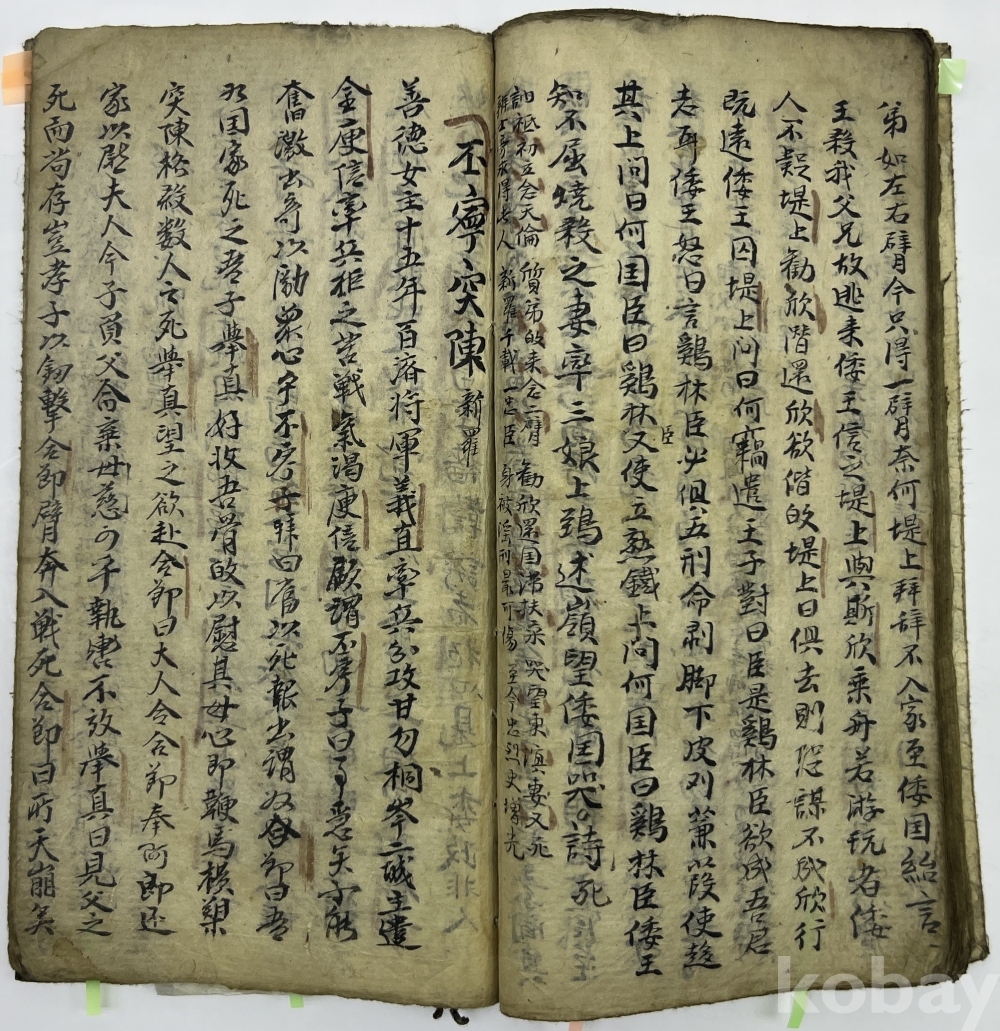 弟如左右臂今只得一臂奈何堤上拜辞不入家至倭国紿言
王殺我父兄故逃来倭王信之堤上與斯欣乗舟若游玩者倭
人不疑堤上勧欣潜還欣欲偕的堤上曰俱去則恐謀不成欣行
既遠倭王囚堤上問曰何竊遣王子對曰臣是鷄林臣欲成吾君
志耳倭王怒曰言鷄林臣必俱五刑命剥脚下皮刈蒹葭使趍
臣
其上問曰何国臣曰鷄林又使立熱鐵上問何国臣曰鷄林臣倭王
知不屈燒殺之妻率三娘上鵄述嶺望倭国哭死詩
訥祗初立念天倫 質弟的来念二臂 勧欣還国 哭望東溟妻又死
得 人 新羅千載一忠臣 身被淫刑最可傷 至今忠烈史増光
丕寧突陳 新羅
善徳女主十五年百済将軍義直率兵分攻甘勿桐岑二城主遣
金庾信率兵拒之苦戦氣渇庾信顧謂丕寧子曰事急矣子能
奮激出奇以勵衆心乎丕寧子拜曰當以死報出謂奴合節曰吾
為国家死之吾子舉真好收吾骨的以慰其母心即鞭馬横槊
突陳格殺数人而死舉真望之欲赴合節曰大人令合節奉阿郎还
家以慰夫人今子負父命棄母慈可乎執轡不放舉真曰見父之
死而苟存豈孝子以釼撃合節臂奔入戦死合節曰所天崩矣